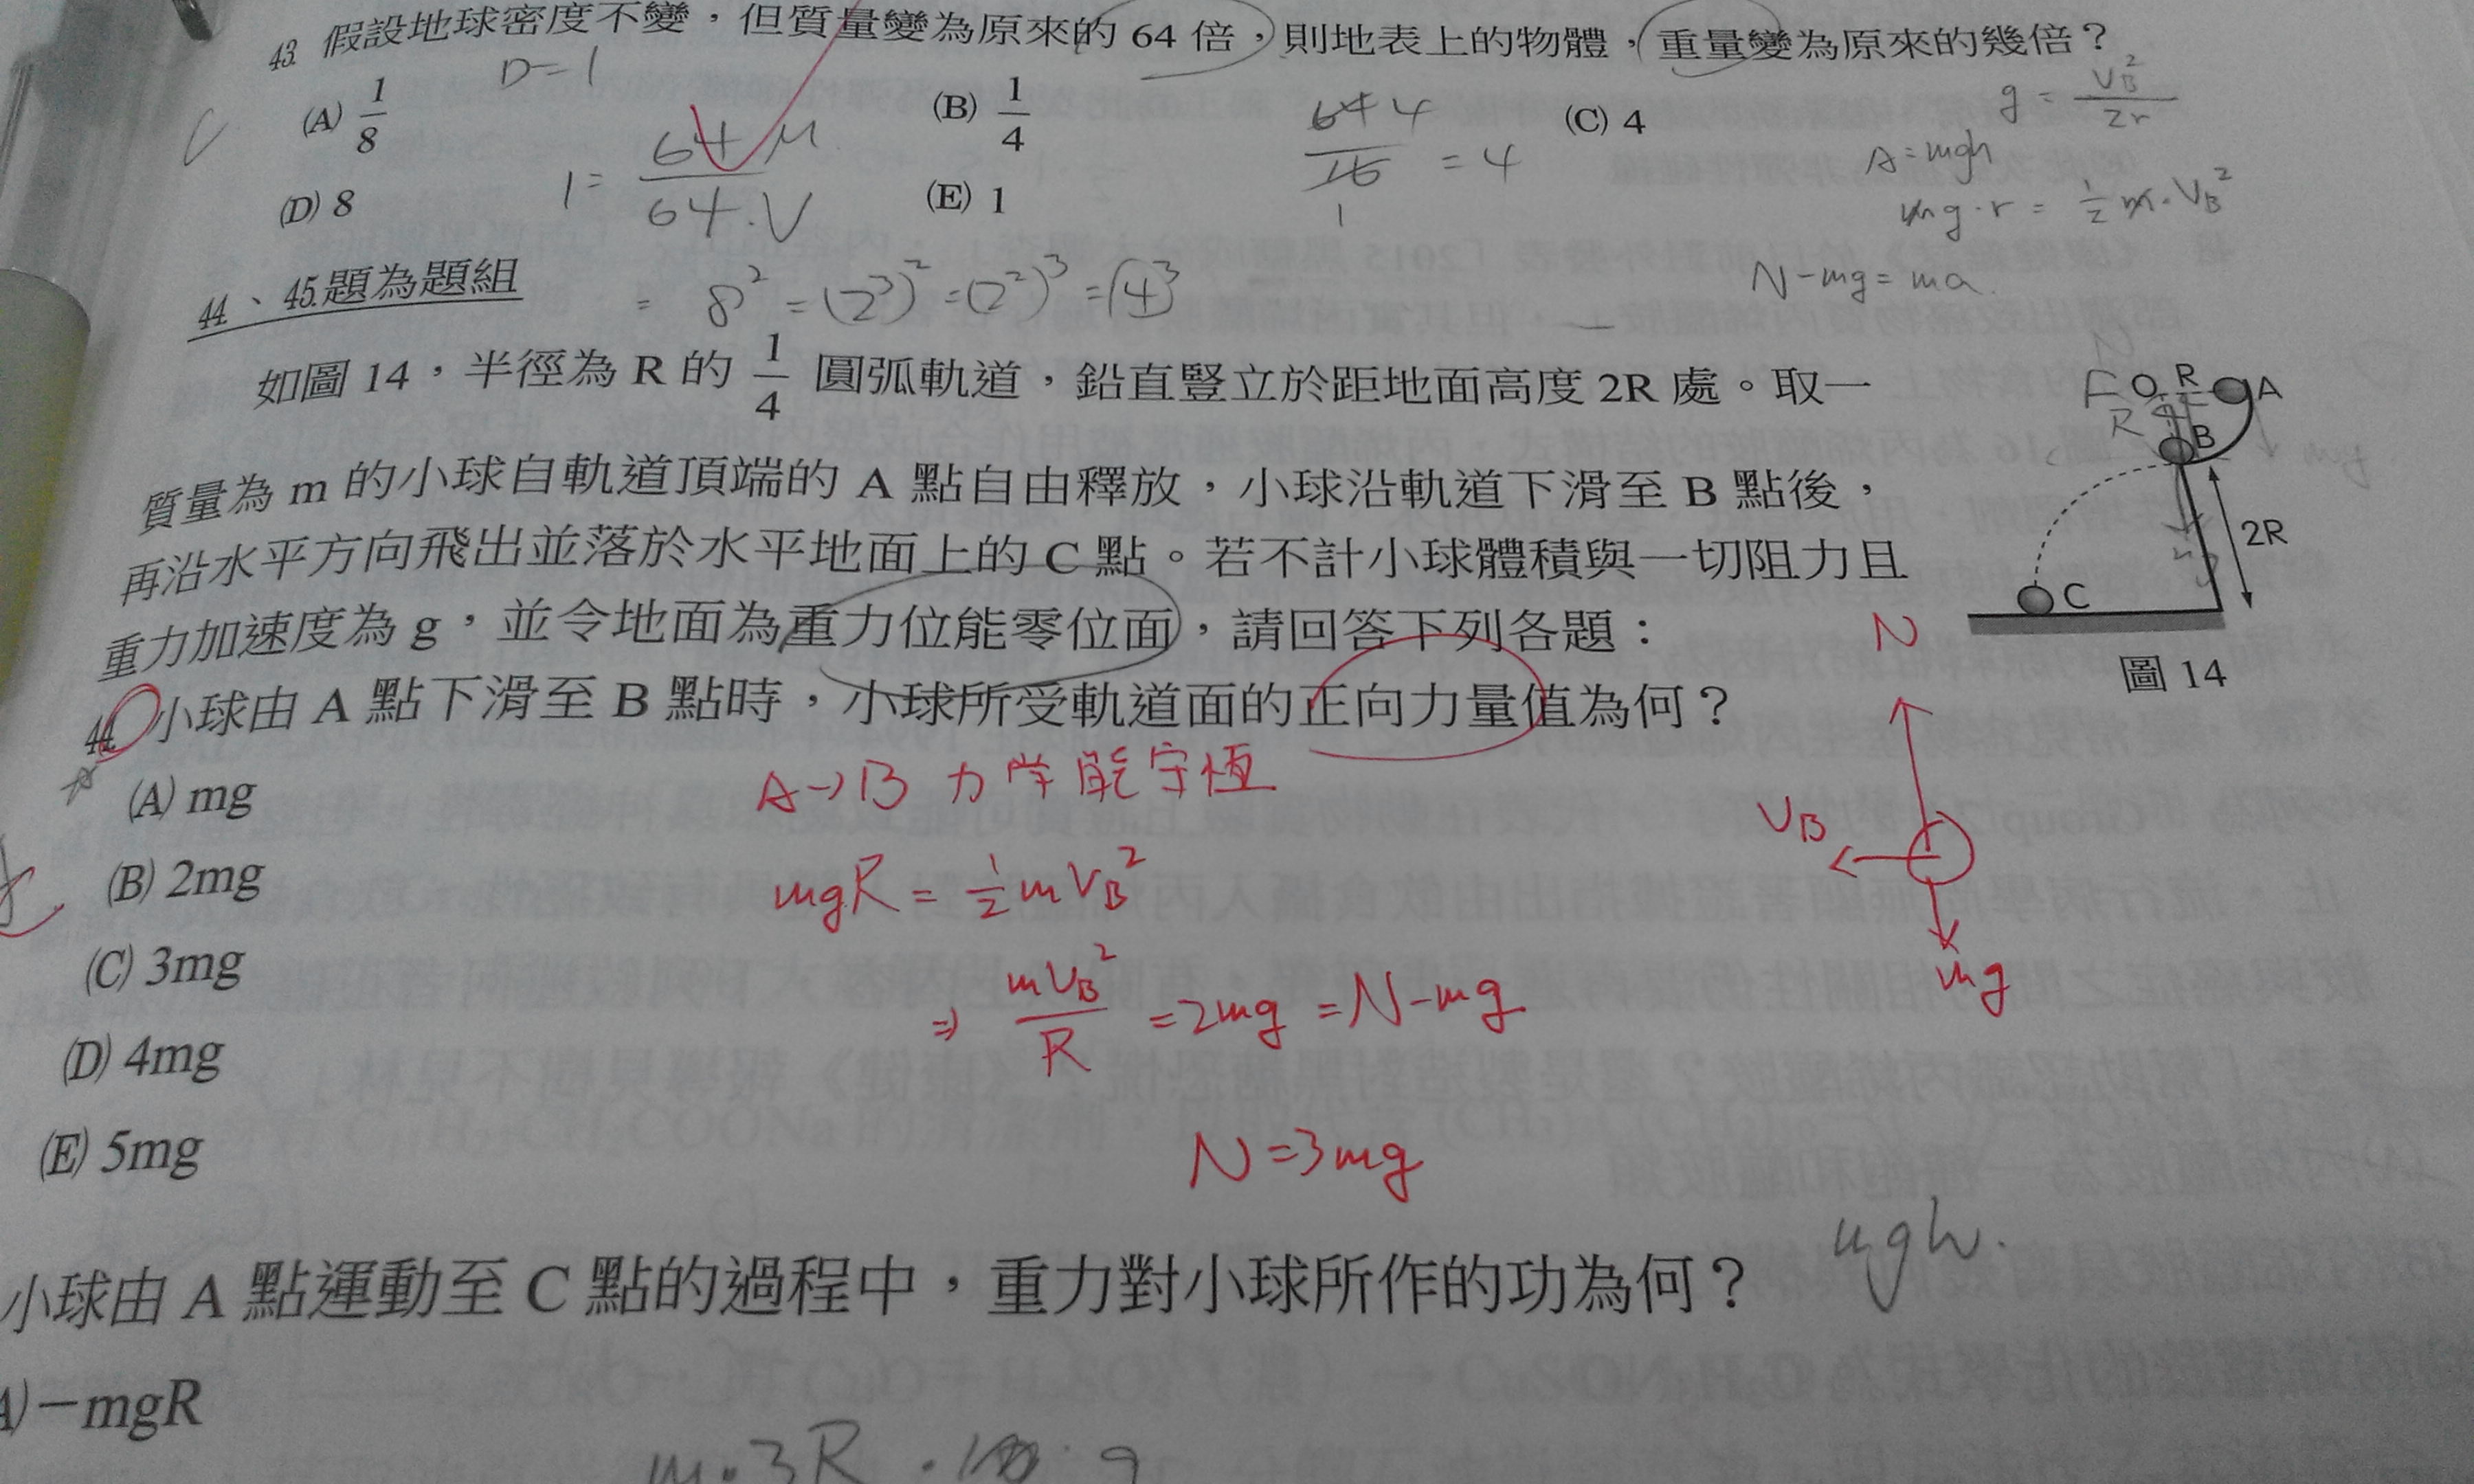 43. 假設地球密度不變，但質量變為原來的 64 倍，則地表上的物體，重量變為原來的幾倍？
D=1
g = V_B²/2r
(A) 1/8 (B) 1/4 (C) 4
C
1 = 64M/64.V
64 4/16 1 = 4
A=mgh
mg·r = 1/2 m·V_B²
(D) 8 (E) 1
N-mg=ma.
44、45.題為題組
= 8² = (2³)² = (2²)³ = (4)³
如圖 14，半徑為 R 的 1/4 圓弧軌道，鉛直豎立於距地面高度 2R 處。取一
質量為 m 的小球自軌道頂端的 A 點自由釋放，小球沿軌道下滑至 B 點後，
再沿水平方向飛出並落於水平地面上的 C 點。若不計小球體積與一切阻力且
重力加速度為 g，並令地面為重力位能零位面，請回答下列各題：
O R A
R
B
mg
2R
C
圖 14
44. 小球由 A 點下滑至 B 點時，小球所受軌道面的正向力量值為何？
(A) mg
(B) 2mg
(C) 3mg
(D) 4mg
(E) 5mg
A→B 力学能守恆
mgR = 1/2 mV_B²
⇒ mV_B²/R = 2mg = N-mg
N=3mg
N
V_B
mg
小球由 A 點運動至 C 點的過程中，重力對小球所作的功為何？
mgh.
A)－mgR
m·3R